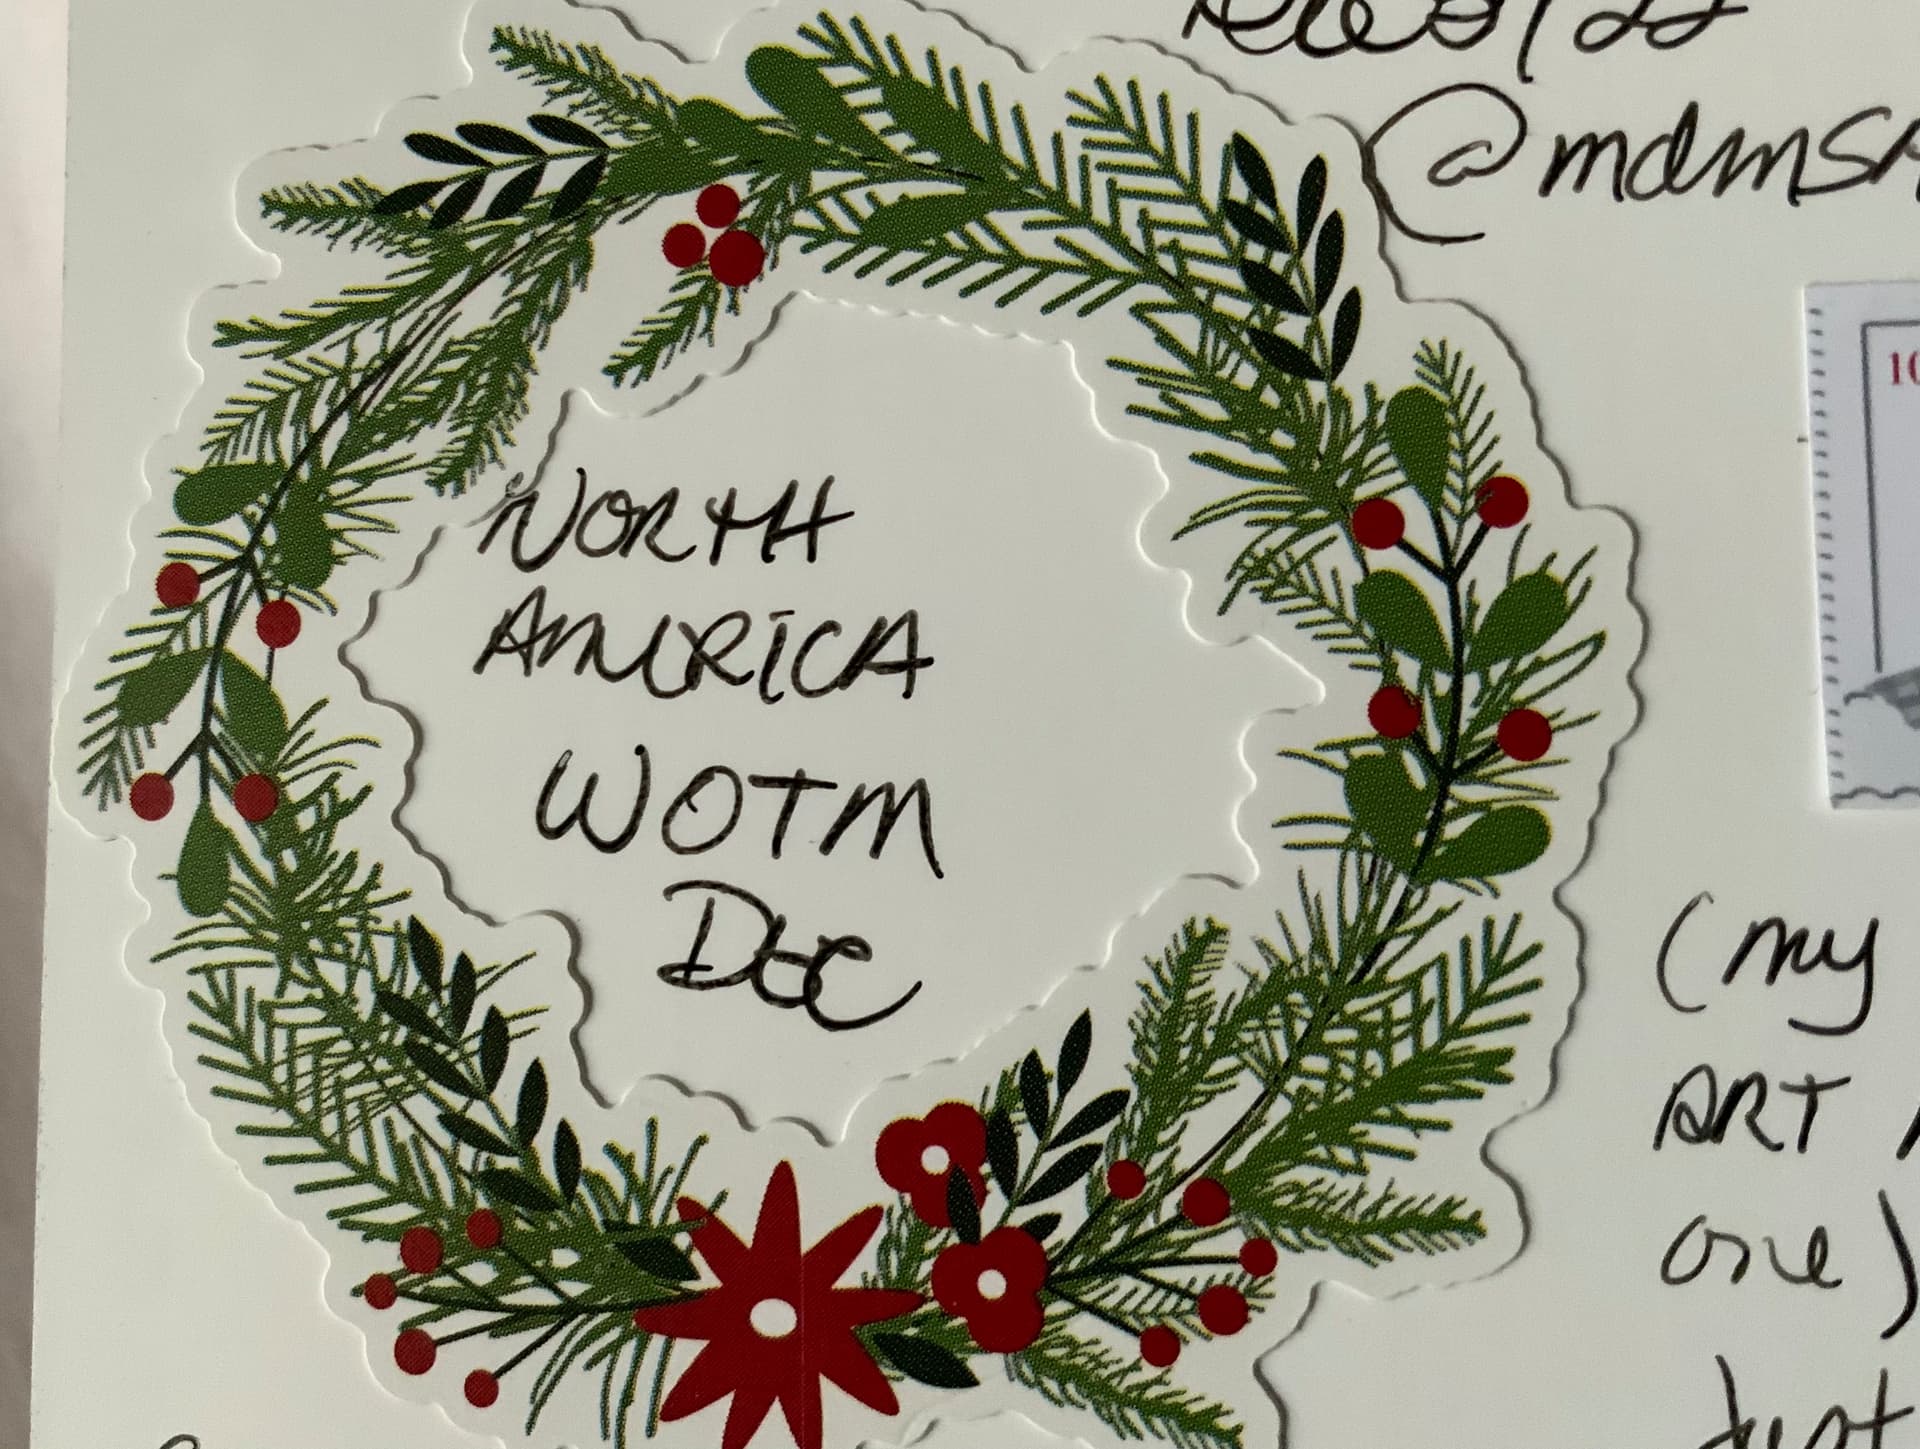 @mdmSA
10
NORTH
AMERICA
WOTM
DEC
(my
ART
one)
Just